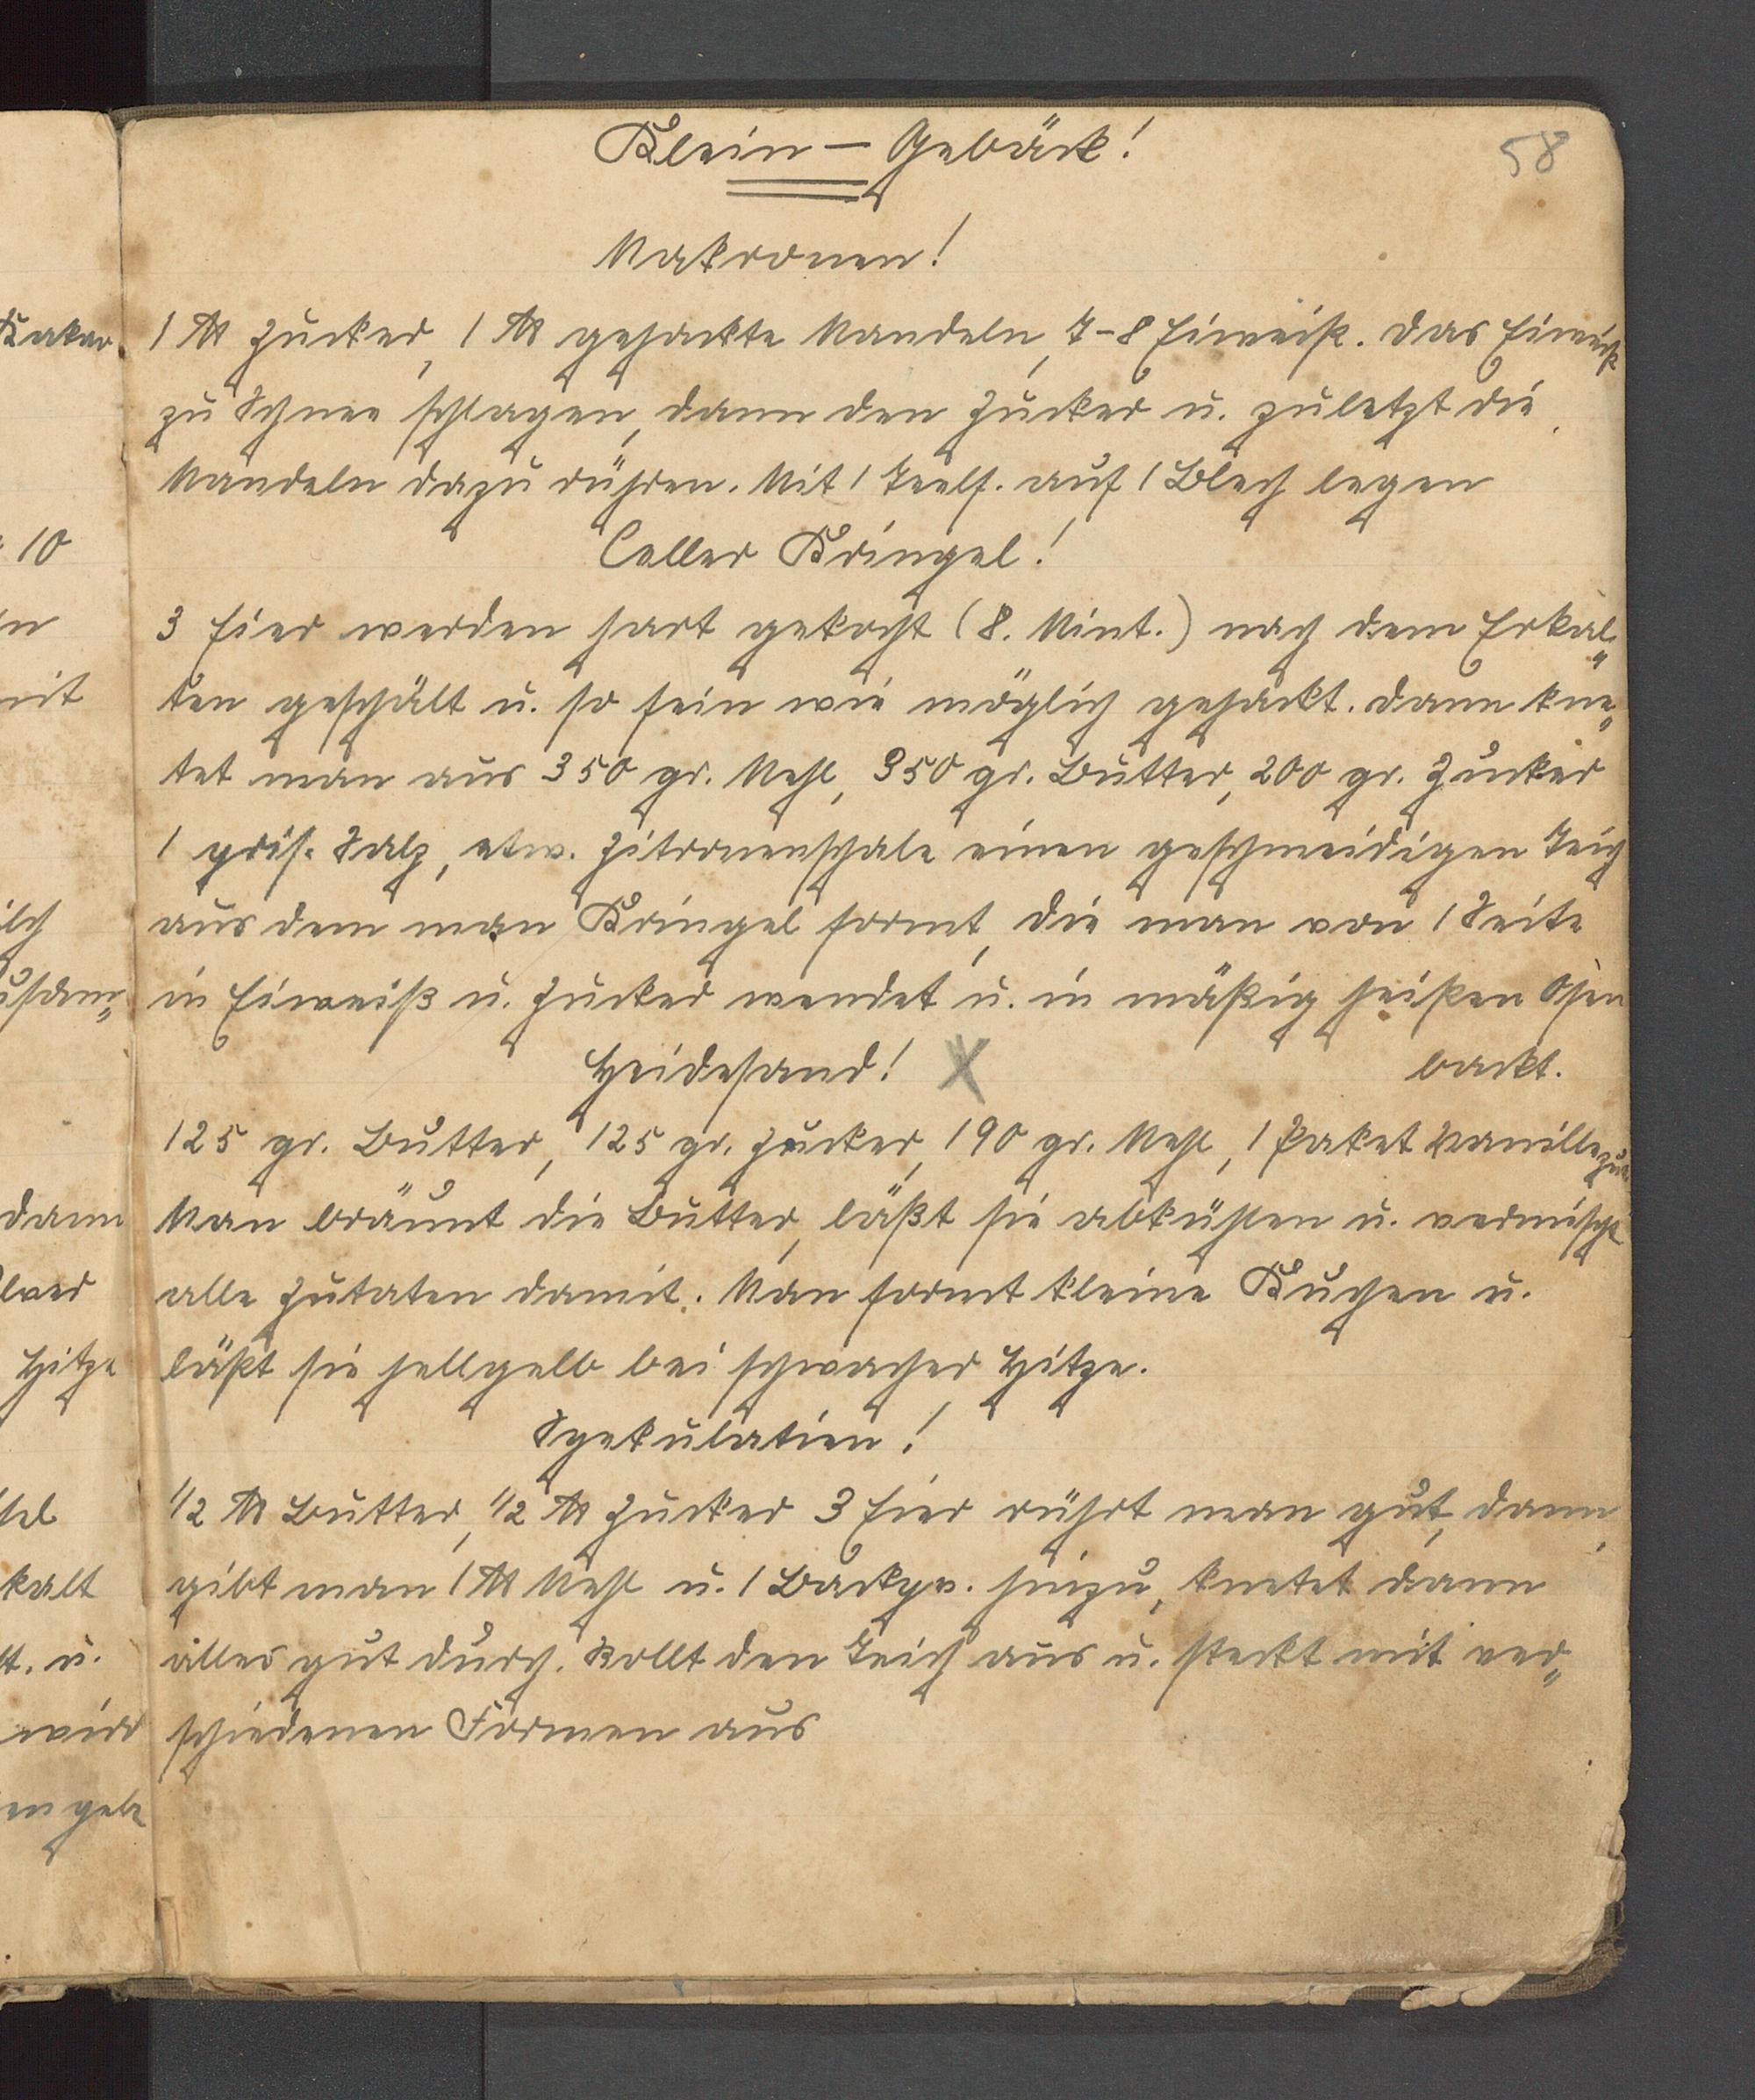 58
Klein - Gebäck!
Makronen!
1 ℔ Zucker, 1 ℔ gehackte Mandeln, 7-8 Eiweiß. Das Eiweiß
zu Schnee schlagen, dann den Zucker u. zuletzt die
Mandeln dazu rühren. Mit 1 Teelf. auf 1 Blech legen
Celler Kringel!
3 Eier werden hart gekocht (8. Mint.) nach dem Erkal„
ten geschält u. so fein wie möglich gehackt. Dann kne„
tet man aus 350 gr. Mehl, 350 gr. Butter, 200 gr. Zucker
1 pris. Salz, etw. Zitronenschale einen geschmeidigen Teig
aus dem man Kringel formt, die man von 1 Seite
in Eiweiß u. Zucker wendet u. in mäßig heißen Ofen
backt.
Heidesand! X
125 gr. Butter, 125 gr. Zucker, 190 gr. Mehl, 1 Paket Vanillezu
Man bräunt die Butter, läßt sie abkühlen u. vermischt
alle Zutaten damit. Man formt kleine Kuchen u.
läßt sie hellgelb bei schwacher Hitze.
Spekulatien!
1/2 ℔ Butter, 1/2 ℔ Zucker 3 Eier rührt man gut, dann
gibt man 1 ℔ Mehl u. 1 Backpv. hinzu, knetet dann
alles gut durch. Rollt den Teich aus u. steckt mit ver„
schiedenen Formen aus
Kakao
10
mit
dann
Hitze
kalt
u.
wird